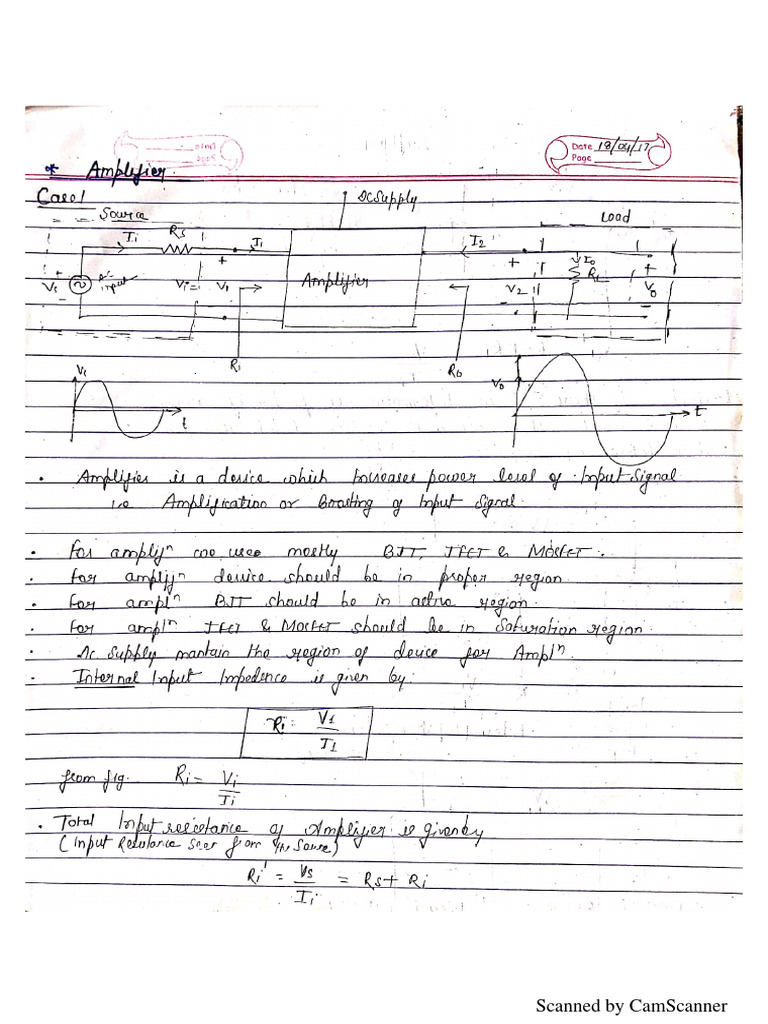 Date 18/04/17
Page
* Amplifier.
Case 1
DC Supply
Source
Load
Ii
Rs
I1
I2
Io
RL
+
+
+
+
Vs
AC input
Vi=
V1
Amplifier
V2
Vo
-
-
-
Ri
Ro
Vi
t
Vo
t
• Amplifier is a device which Increases power level of Input Signal
i.e Amplification or Boosting of Input Signal.
• For amplifⁿ we use mostly BJT, JFET & Mosfet.
• For amplifⁿ device should be in proper region.
• For amplⁿ BJT should be in active region.
• For amplⁿ JFET & MOSFET should be in Saturation region.
• DC Supply mantain the region of device for Amplⁿ.
• Internal Input Impedence is given by:
Ri = V1/I1
from fig. Ri = Vi/Ii
• Total Input resistance of Amplifier is given by
(Input Resistance seen from the Source)
Ri' = Vs/Ii = Rs + Ri
Scanned by CamScanner